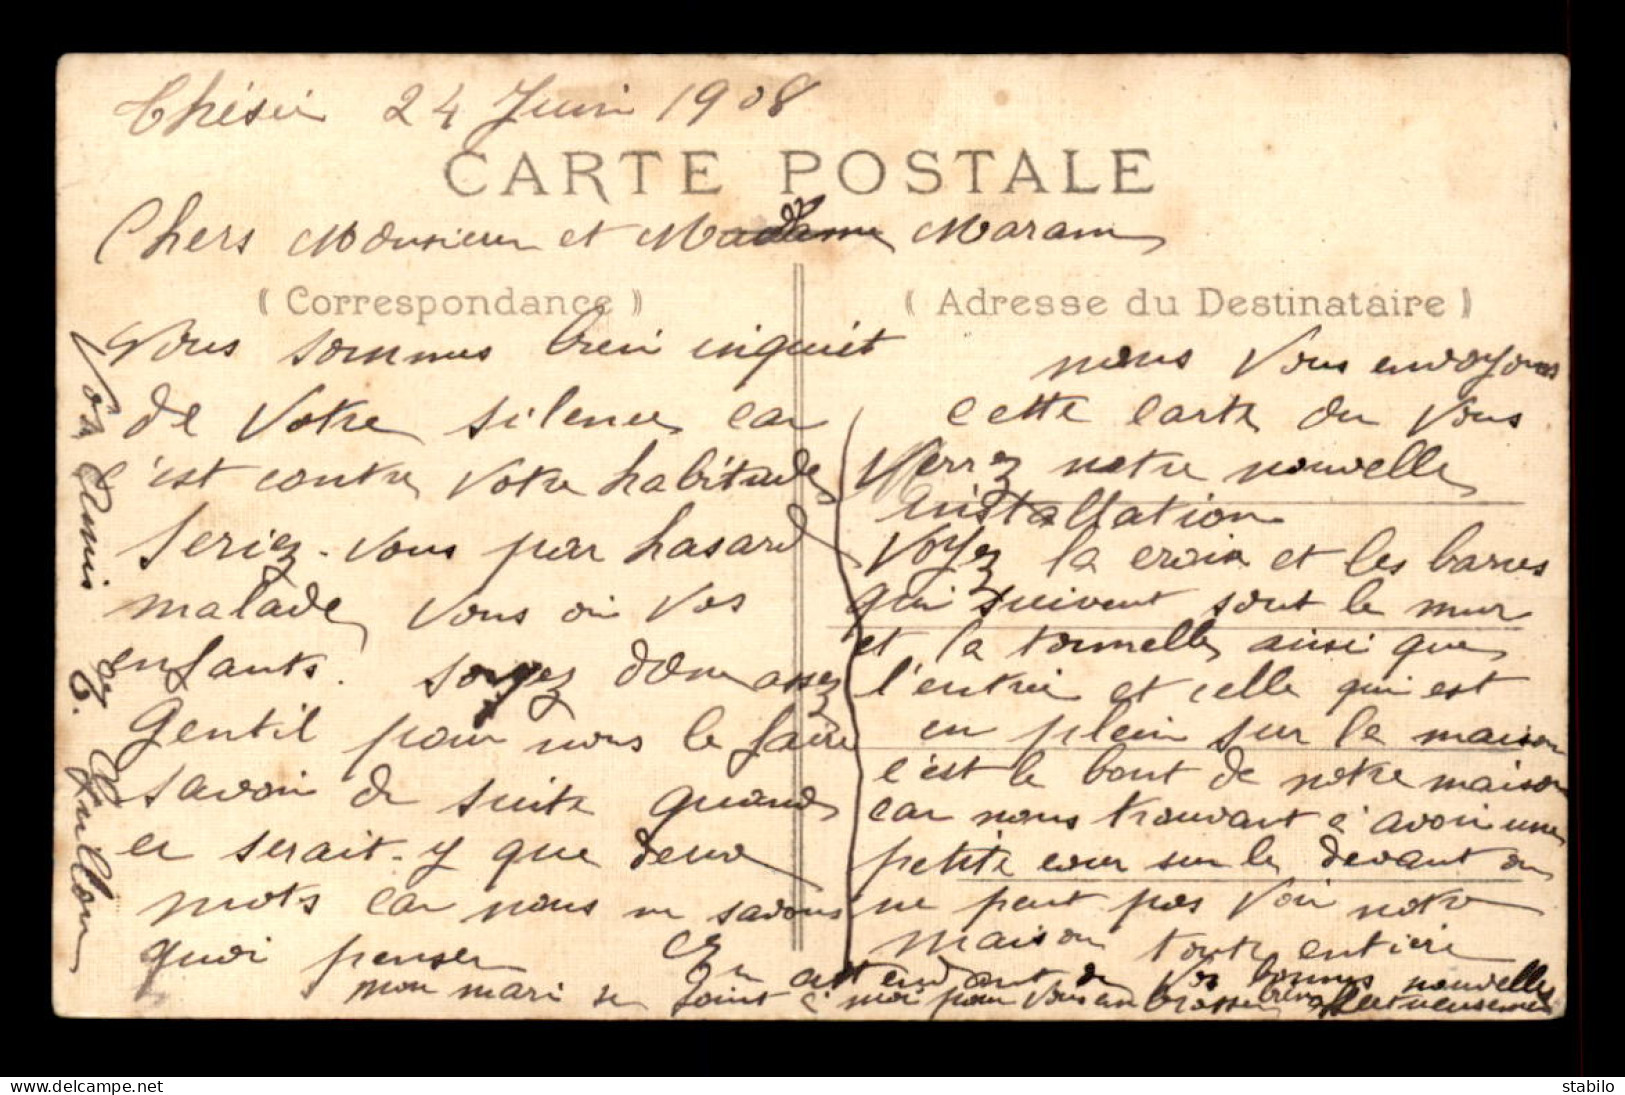 Thésée 24 Juin 1908
CARTE POSTALE
Chers Monsieur et Madame Maram
( Correspondance )
Nous sommes bien inquiet
de Votre silence car
c'est contre Votre habitude
Seriez-vous par hasard
malade vous ou vos
enfants. Soyez donc assez
Gentil pour nous le faire
savoir de suite quand
ce serait-y que deux
mots car nous ne savons
quoi penser
( Adresse du Destinataire )
nous Vous envoyons
cette carte ou Vous
Verrez notre nouvelle
installation
Voyez la croix et les barres
qui suivent sont le mur
et la tonnelle ainsi que
l'entrée et celle qui est
en plein sur la maison
c'est le bout de notre maison
car nous trouvant à avoir une
petite cour sur le devant on
ne peut pas Voir notre
maison toute entière
En attendant de Vos bonnes nouvelles
mon mari se joint à moi pour Vous embrasser bien affectueusement
Vos Amis
stabilo